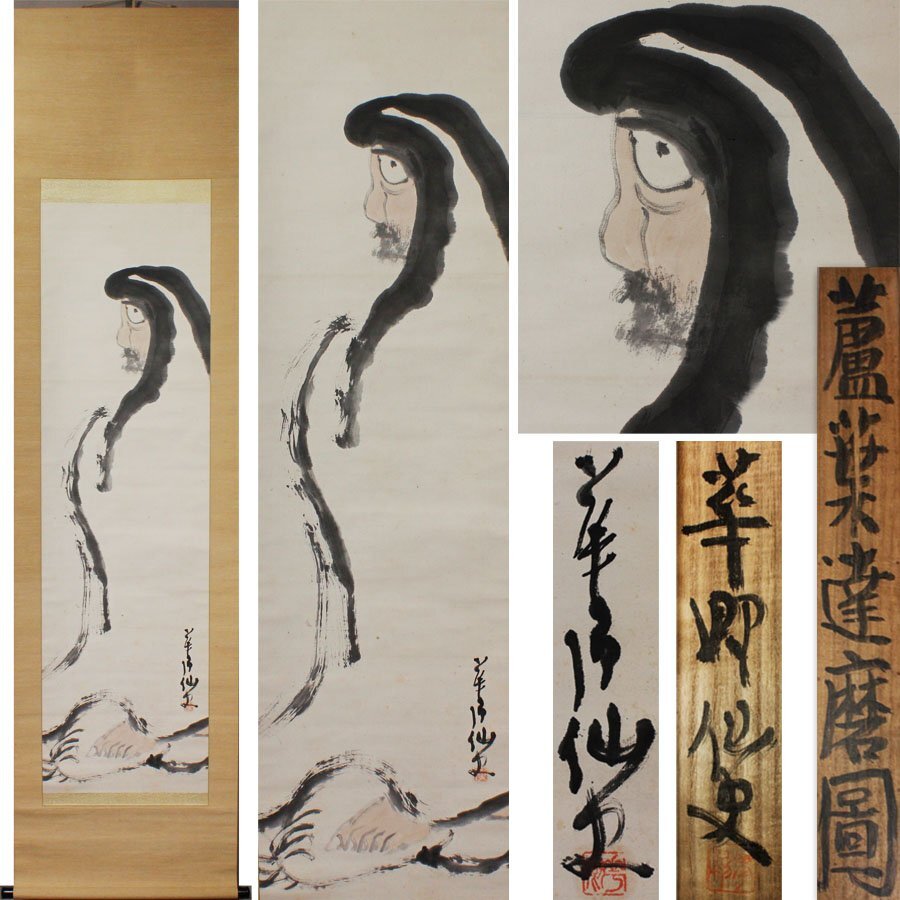 華仙史
華仙史
華仙史
華仙史
蘆葉達磨圖